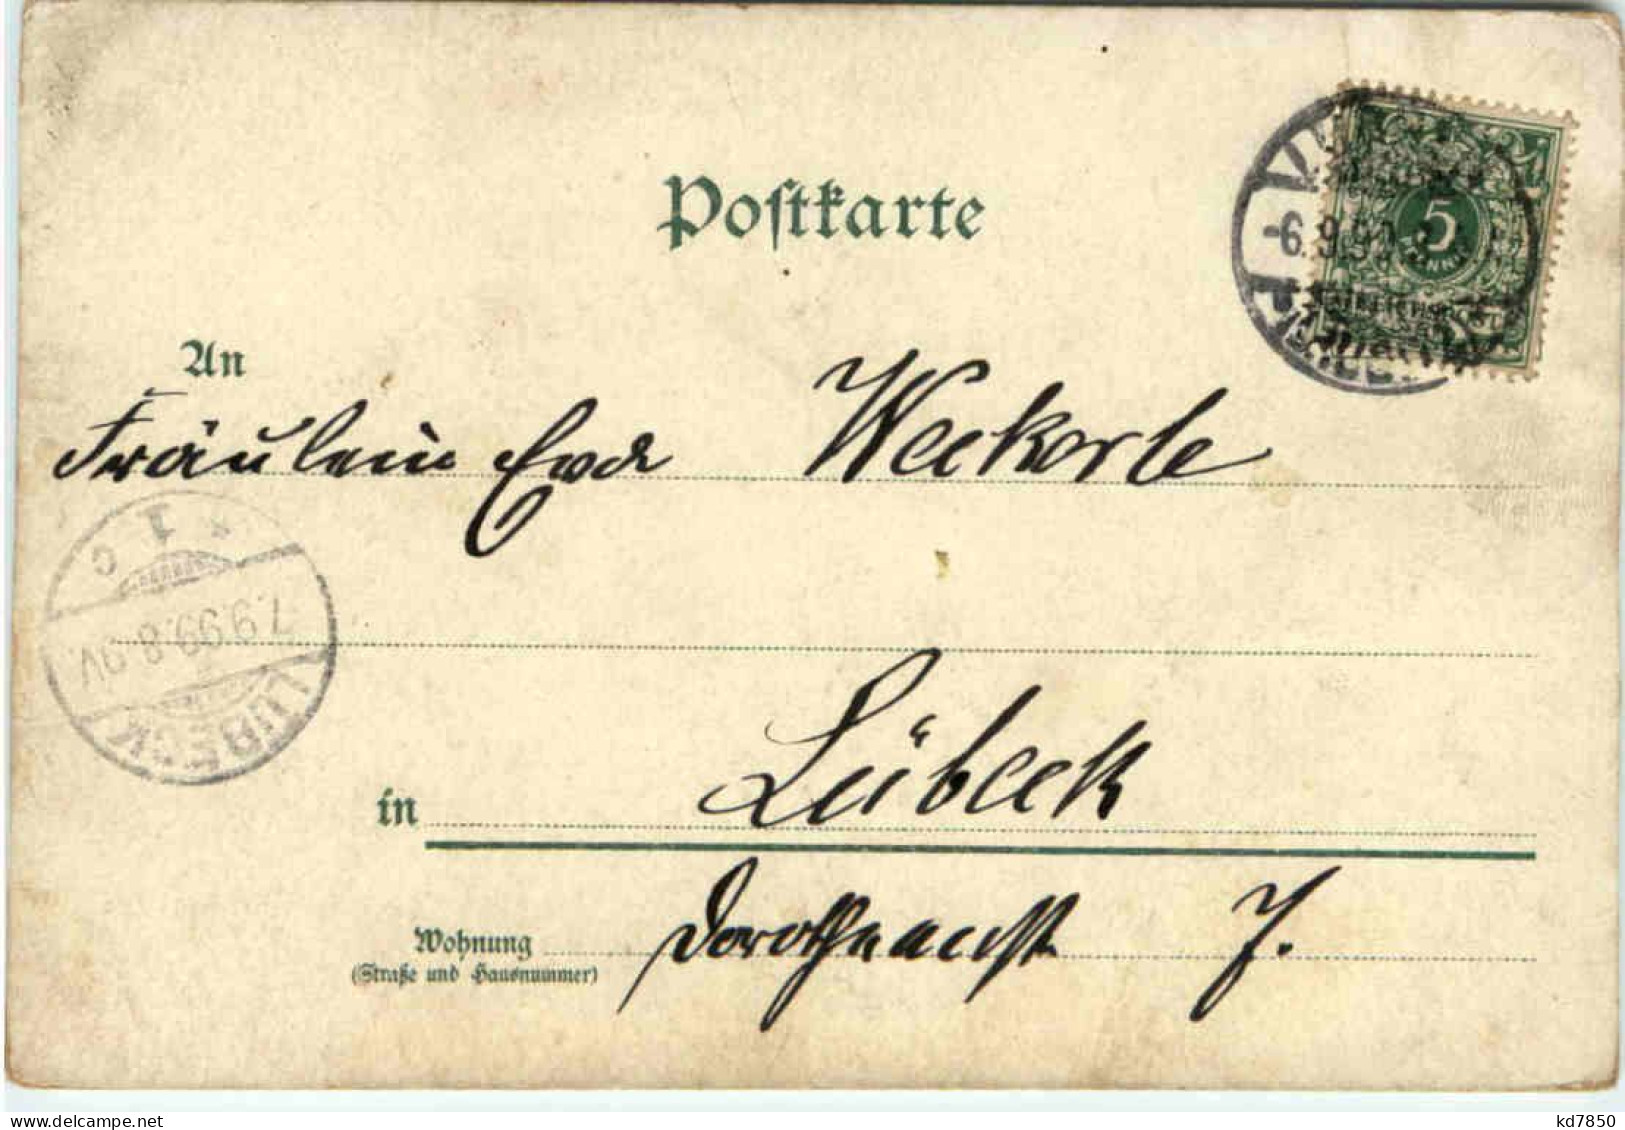 Postkarte
5
-6.9.99.
An
Fräulein Erda Weckerle
* 1 c
7.9.99.8-9V.
LÜBECK
in Lübeck
Wohnung
(Straße und Hausnummer)
Dorotheenst 7.
kd7850